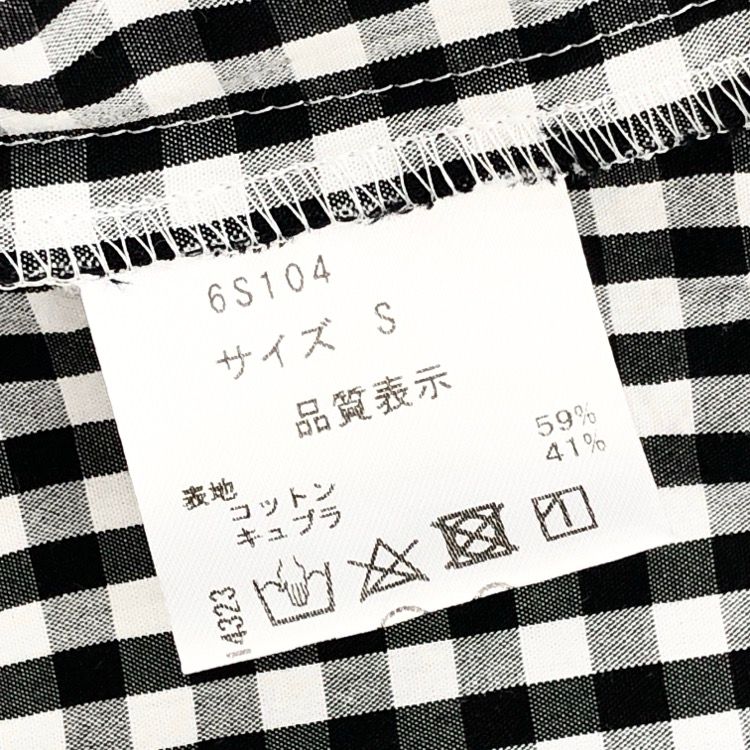 6S104
サイズ S
品質表示
表地
コットン 59%
キュプラ 41%
4323